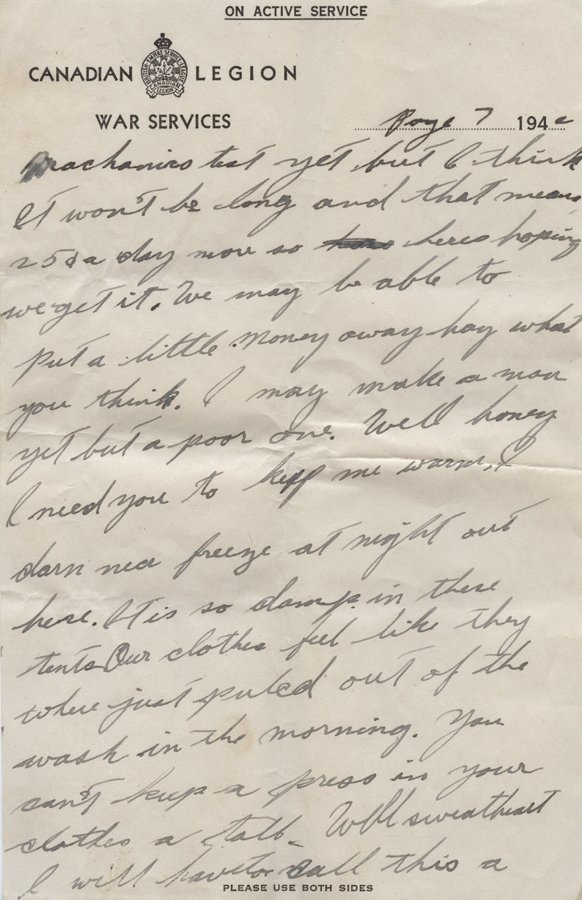 ON ACTIVE SERVICE
CANADIAN LEGION
WAR SERVICES
Page 7 194
Mechanics test yet but I think
it won't be long and that means
25¢ a day more so heres hoping
we get it. We may be able to
put a little money away hay what
you think. I may make a man
yet but a poor one. Well honey
I need you to keep me warm. I
darn near freeze at night out
here. It is so damp in these
tents Our clothes feel like they
where just puled out of the
wash in the morning. You
can't keep a press in your
clothes a tall. Well sweetheart
I will have to call this a
PLEASE USE BOTH SIDES